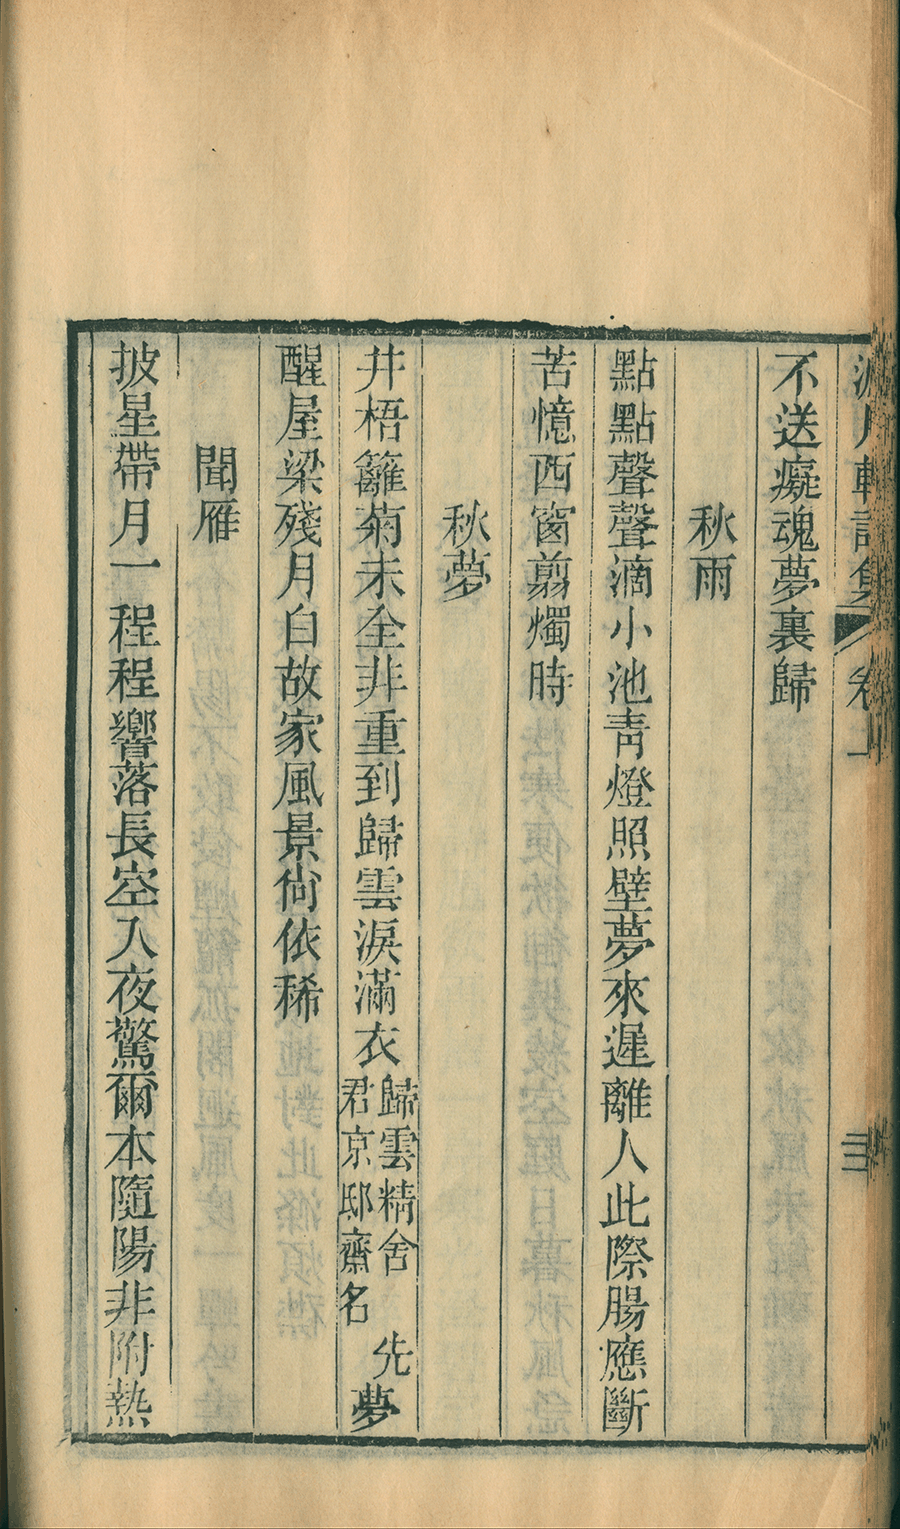 月軒詩集 卷上 三
不送癡魂夢裏歸
秋雨
點點聲聲滴小池靑燈照壁夢來遲離人此際腸應斷
苦憶西窗翦燭時
秋夢
井梧籬菊未全非重到歸雲淚滿衣歸雲精舍 先君京邸齋名夢
醒屋梁殘月白故家風景尙依稀
聞雁
披星帶月一程程響落長空入夜驚爾本隨陽非附熱